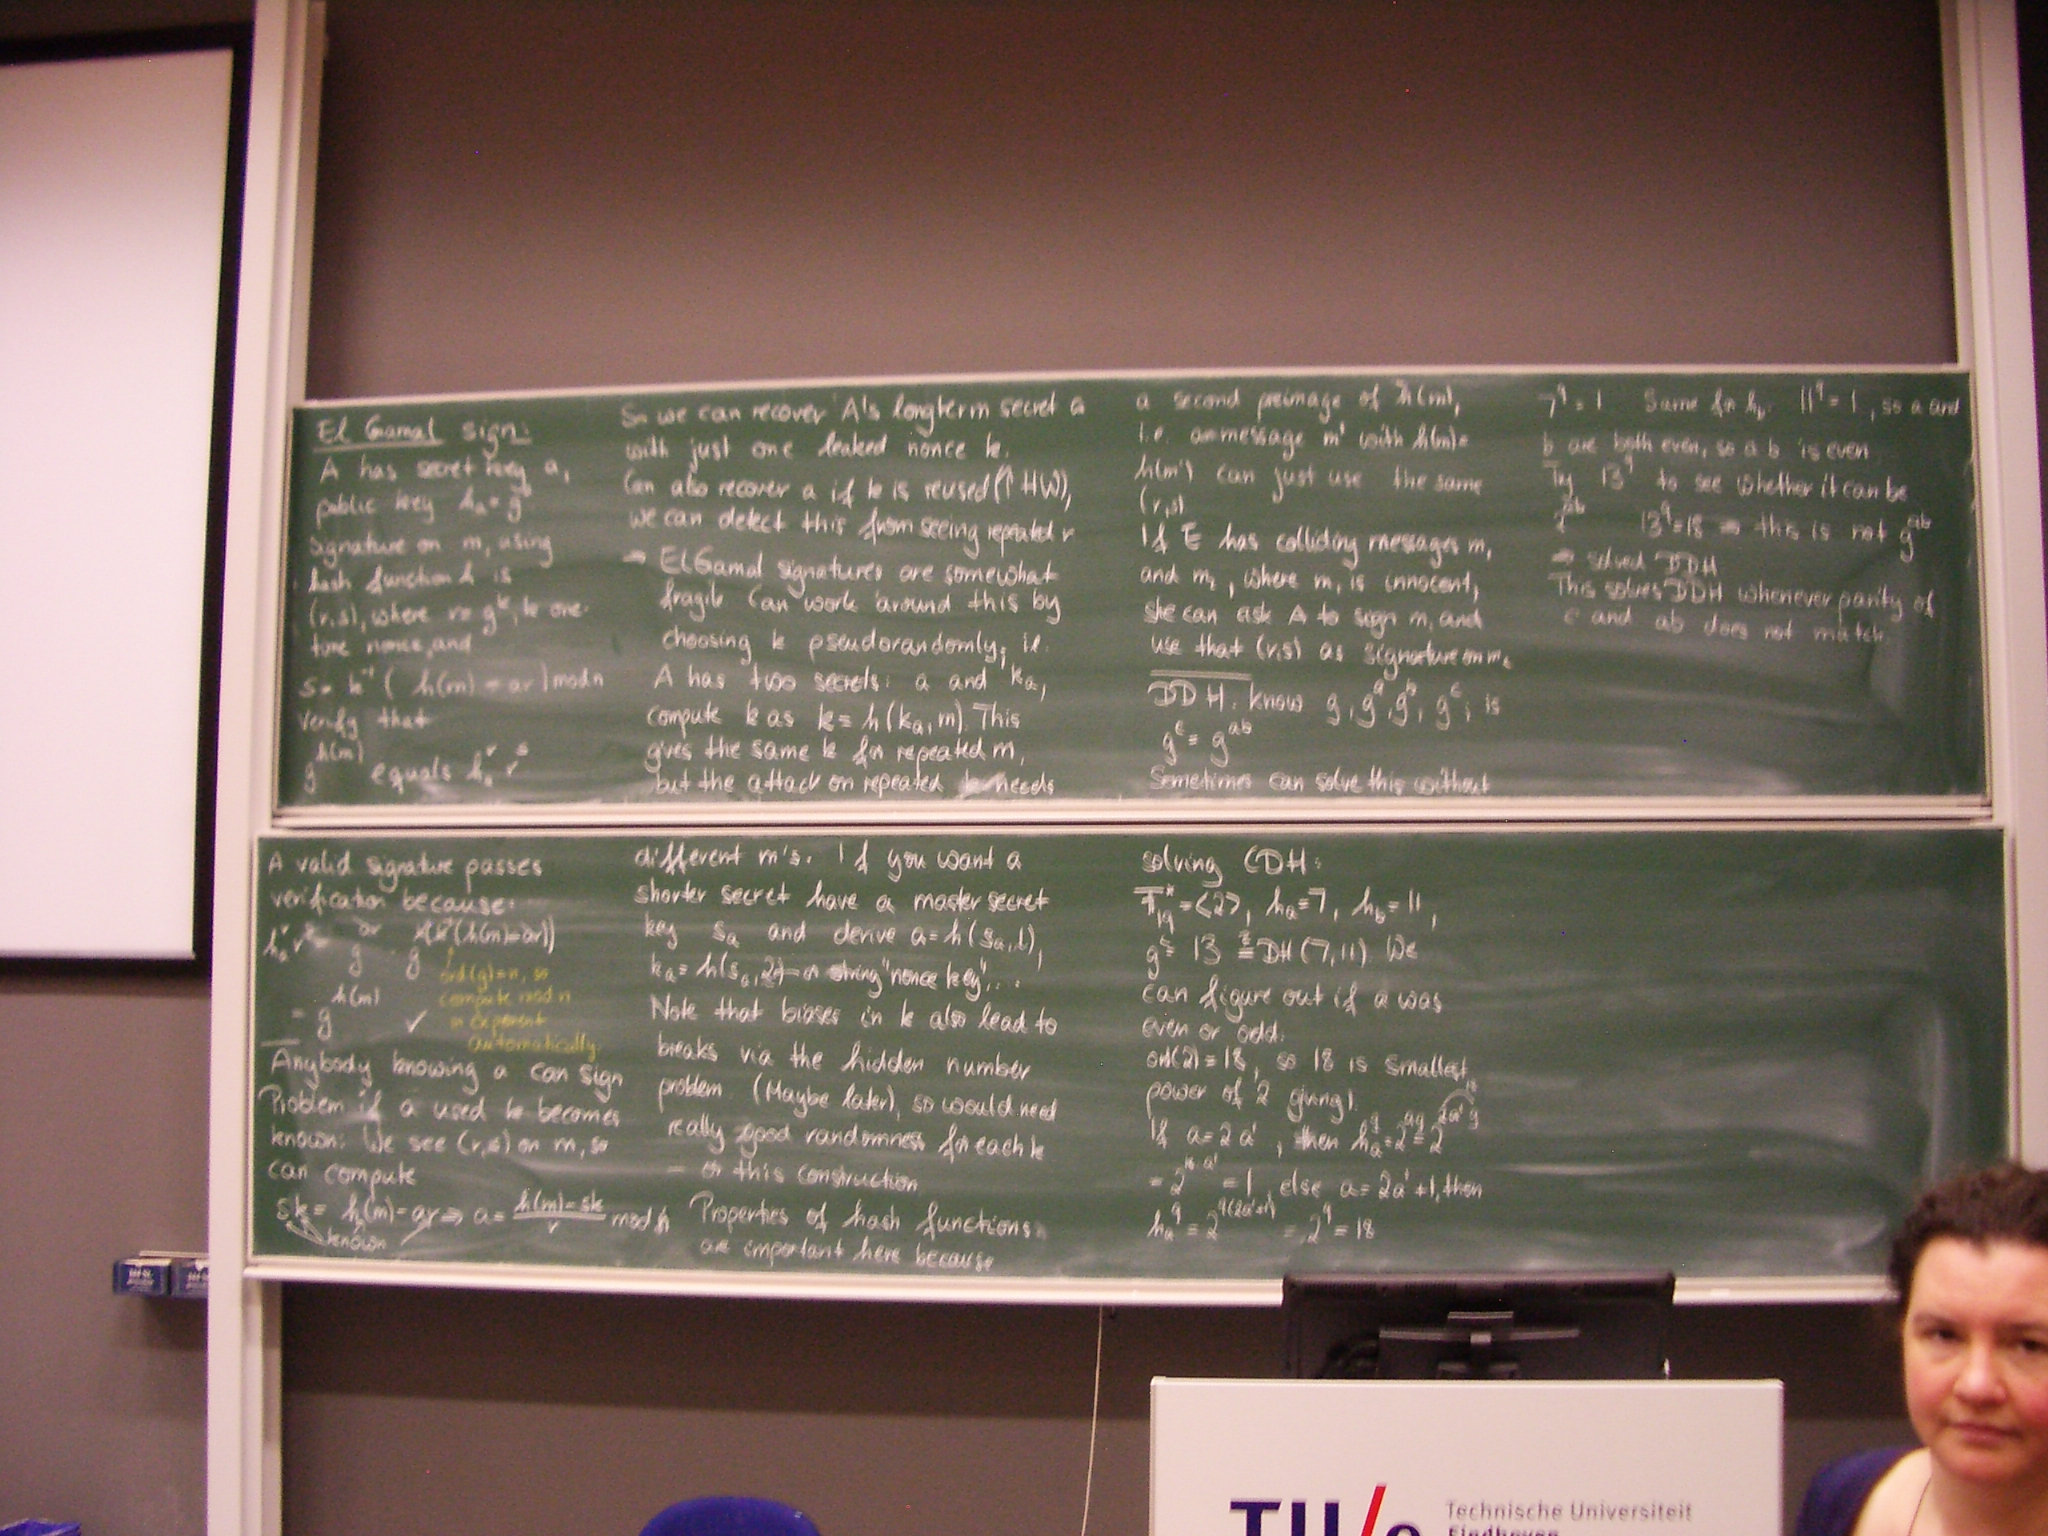 El Gamal sign:
A has secret key a,
public key hₐ = gᵃ
signature on m, using
hash function h is
(r,s), where r = gᵏ, k one-
time nonce, and
s = k⁻¹ (h(m) - ar) mod n
verify that
g^h(m) equals hₐʳ rˢ
A valid signature passes
verification because:
hₐʳ rˢ = g^ar g^k(k⁻¹(h(m)-ar))
ord(g)=n, so
compute mod n
in exponent
automatically
= g^h(m) ✓
Anybody knowing a can sign
Problem if a used k becomes
known: We see (r,s) on m, so
can compute
sk = h(m) - ar ⇒ a = (h(m)-sk)/r mod n
known
So we can recover A's longterm secret a
with just one leaked nonce k.
Can also recover a if k is reused (↑ HW),
we can detect this from seeing repeated r
⇒ ElGamal signatures are somewhat
fragile Can work around this by
choosing k pseudorandomly, i.e.
A has two secrets: a and kₐ,
compute k as k = h(kₐ, m). This
gives the same k for repeated m,
but the attack on repeated k needs
different m's. If you want a
shorter secret have a master secret
key sₐ and derive a = h(sₐ,1),
kₐ = h(sₐ,2) - or string "nonce key", ...
Note that biases in k also lead to
breaks via the hidden number
problem. (Maybe later), so would need
really good randomness for each k
- or this construction
Properties of hash functions
are important here because
a second preimage of h(m),
i.e. a message m' with h(m)=
h(m') can just use the same
(r,s)
If E has colliding messages m₁
and m₂, where m₁ is innocent,
she can ask A to sign m₁ and
use that (r,s) as signature on m₂
DDH: know g, gᵃ, gᵇ, gᶜ; is
gᶜ = gᵃᵇ
Sometimes can solve this without
solving CDH:
F₁₉* = <2>, hₐ=7, h_b=11,
gᶜ = 13 ≟ DH(7,11) We
can figure out if a was
even or odd.
ord(2)=18, so 18 is smallest
power of 2 giving 1.
If a=2a', then hₐ⁹ = 2^a9 = 2^2a'9
= 2^18·a' = 1, else a=2a'+1, then
hₐ⁹ = 2^9(2a'+1) = 2⁹ = 18
7⁹ = 1 Same for h_b. 11⁹ = 1, so a and
b are both even, so ab is even
Try 13⁹ to see whether it can be
gᵃᵇ 13⁹=18 ⇒ this is not gᵃᵇ
⇒ solved DDH
This solves DDH whenever parity of
c and ab does not match.
TU/e Technische Universiteit
Eindhoven